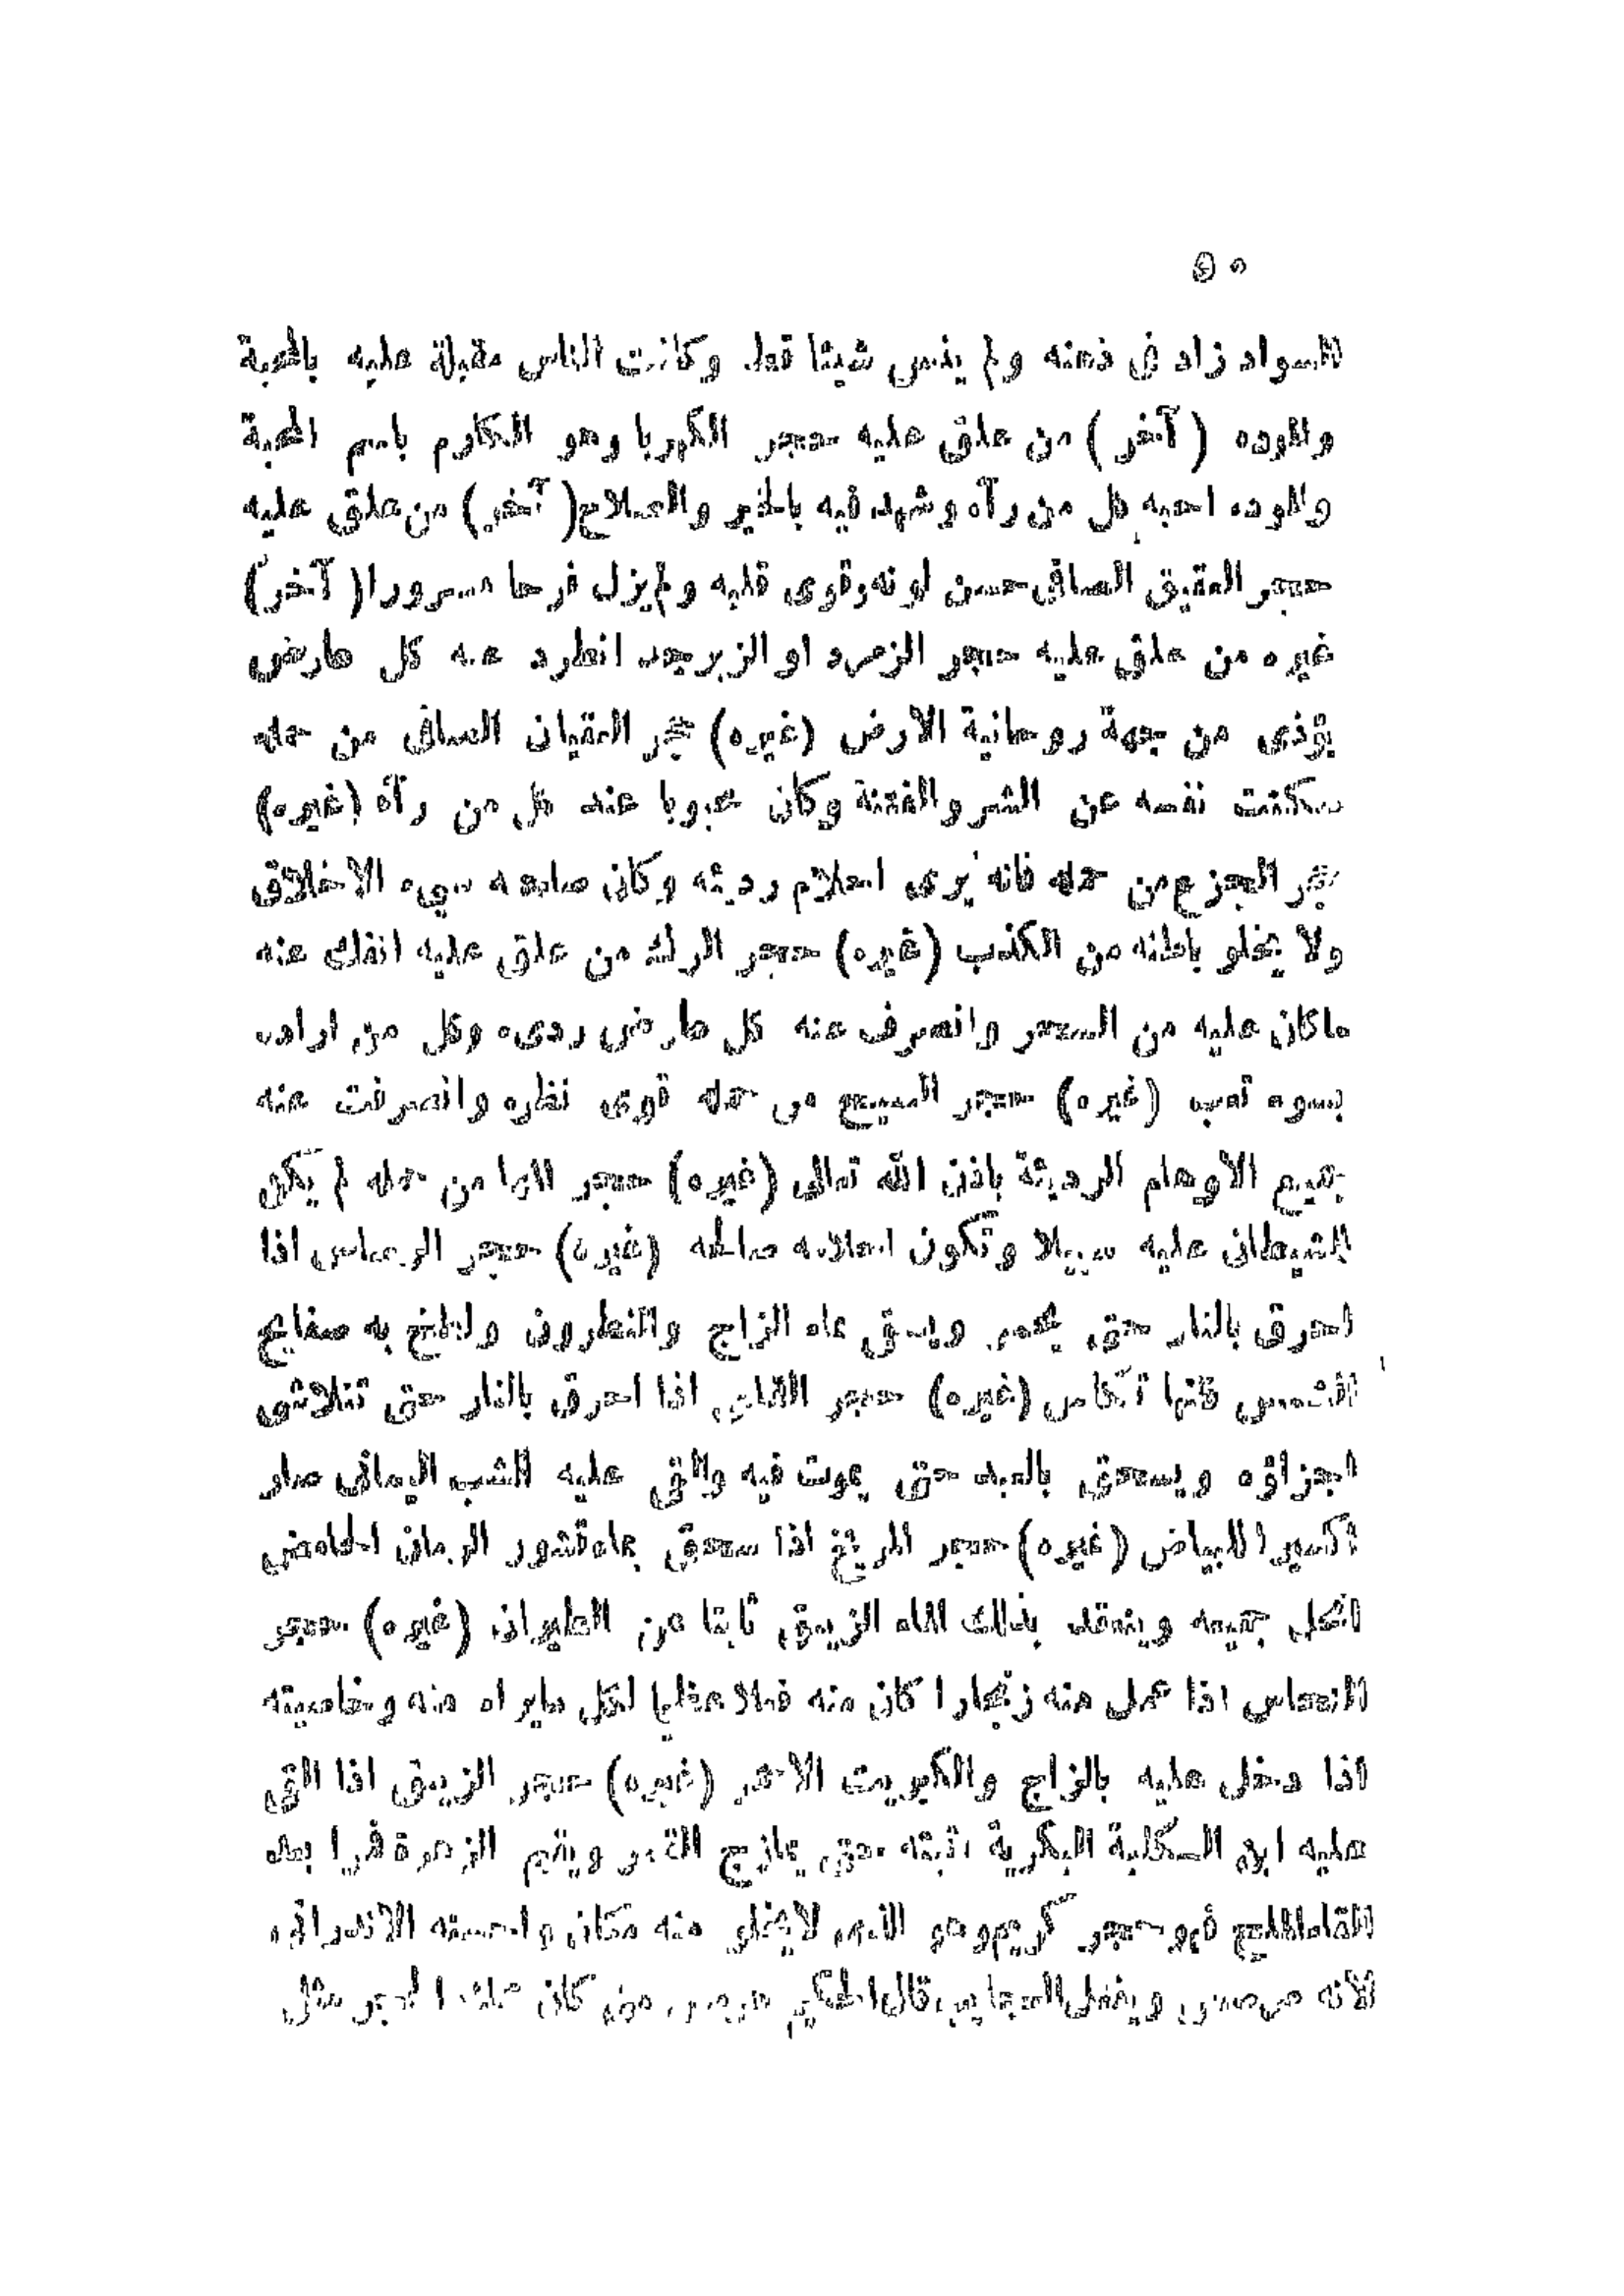 السواد زاد فى ذهنه ولم ينس شيئا قط وكانت الناس مقبلة عليه بالمحبة
والموده (آخر) من علق عليه حجر الكهربا وهو المكارم باسم المحبة
والموده احبه كل من رآه وشهد فيه بالخير والصلاح (آخر) من علق عليه
حجر العقيق الصافى حسن لونه وقوى قلبه ولم يزل فرحا مسرورا (آخر)
غيره من علق عليه حجر الزمرد او الزبرجد انطرد عنه كل عارض
يؤذى من جهة روحانية الارض (غيره) حجر العقيان الصافى من حمله
سكنت نفسه عن الشر والفتنة وكان محبوبا عند كل من رآه (غيره)
حجر الجزع من حمله فانه يرى احلام رديئه وكان صاحبه سىء الاخلاق
ولا يخلو باطنه من الكذب (غيره) حجر من علق عليه انفك عنه
ماكان عليه من السحر وانصرف عنه كل عارض ردىء وكل من اراده
بسوء تعب (غيره) حجر السبج من حمله قوى نظره وانصرفت عنه
جميع الاوهام الرديئة باذن الله تعالى (غيره) حجر من حمله لم يكن
للشيطان عليه سبيلا وتكون احلامه صالحه (غيره) حجر الرصاص اذا
احرق بالنار حتى يحمر ويسقى ماء الزاج والنطرون ولطخ به صفايح
الشمس فانها تكلس (غيره) حجر القلعى اذا احرق بالنار حتى تتلاشى
اجزاؤه ويسحق بالعبد حتى يموت فيه والقى عليه الشب اليمانى صار
اكسيرا للبياض (غيره) حجر المريخ اذا سحق بماء قشور الرمان الحامض
انحل جميعه وينعقد بذلك الماء الزيبق ثابتا عن الطيران (غيره) حجر
النحاس اذا عمل منه زنجارا كان منه فعلا عظيما لكل مايراه منه وخاصيته
اذا دخل عليه بالزاج والكبريت الاحمر (غيره) حجر الزيبق اذا القى
عليه ابن الكلبة البكرية اثبته حتى يمازج القمر ويقيم الزهرة قمرا بعد
القلع فهو حجر كريم وهو الذى لايخلو منه مكان واحسنه
لانه ويفعل العجايب قال الحكيم هرمس من كان مثل